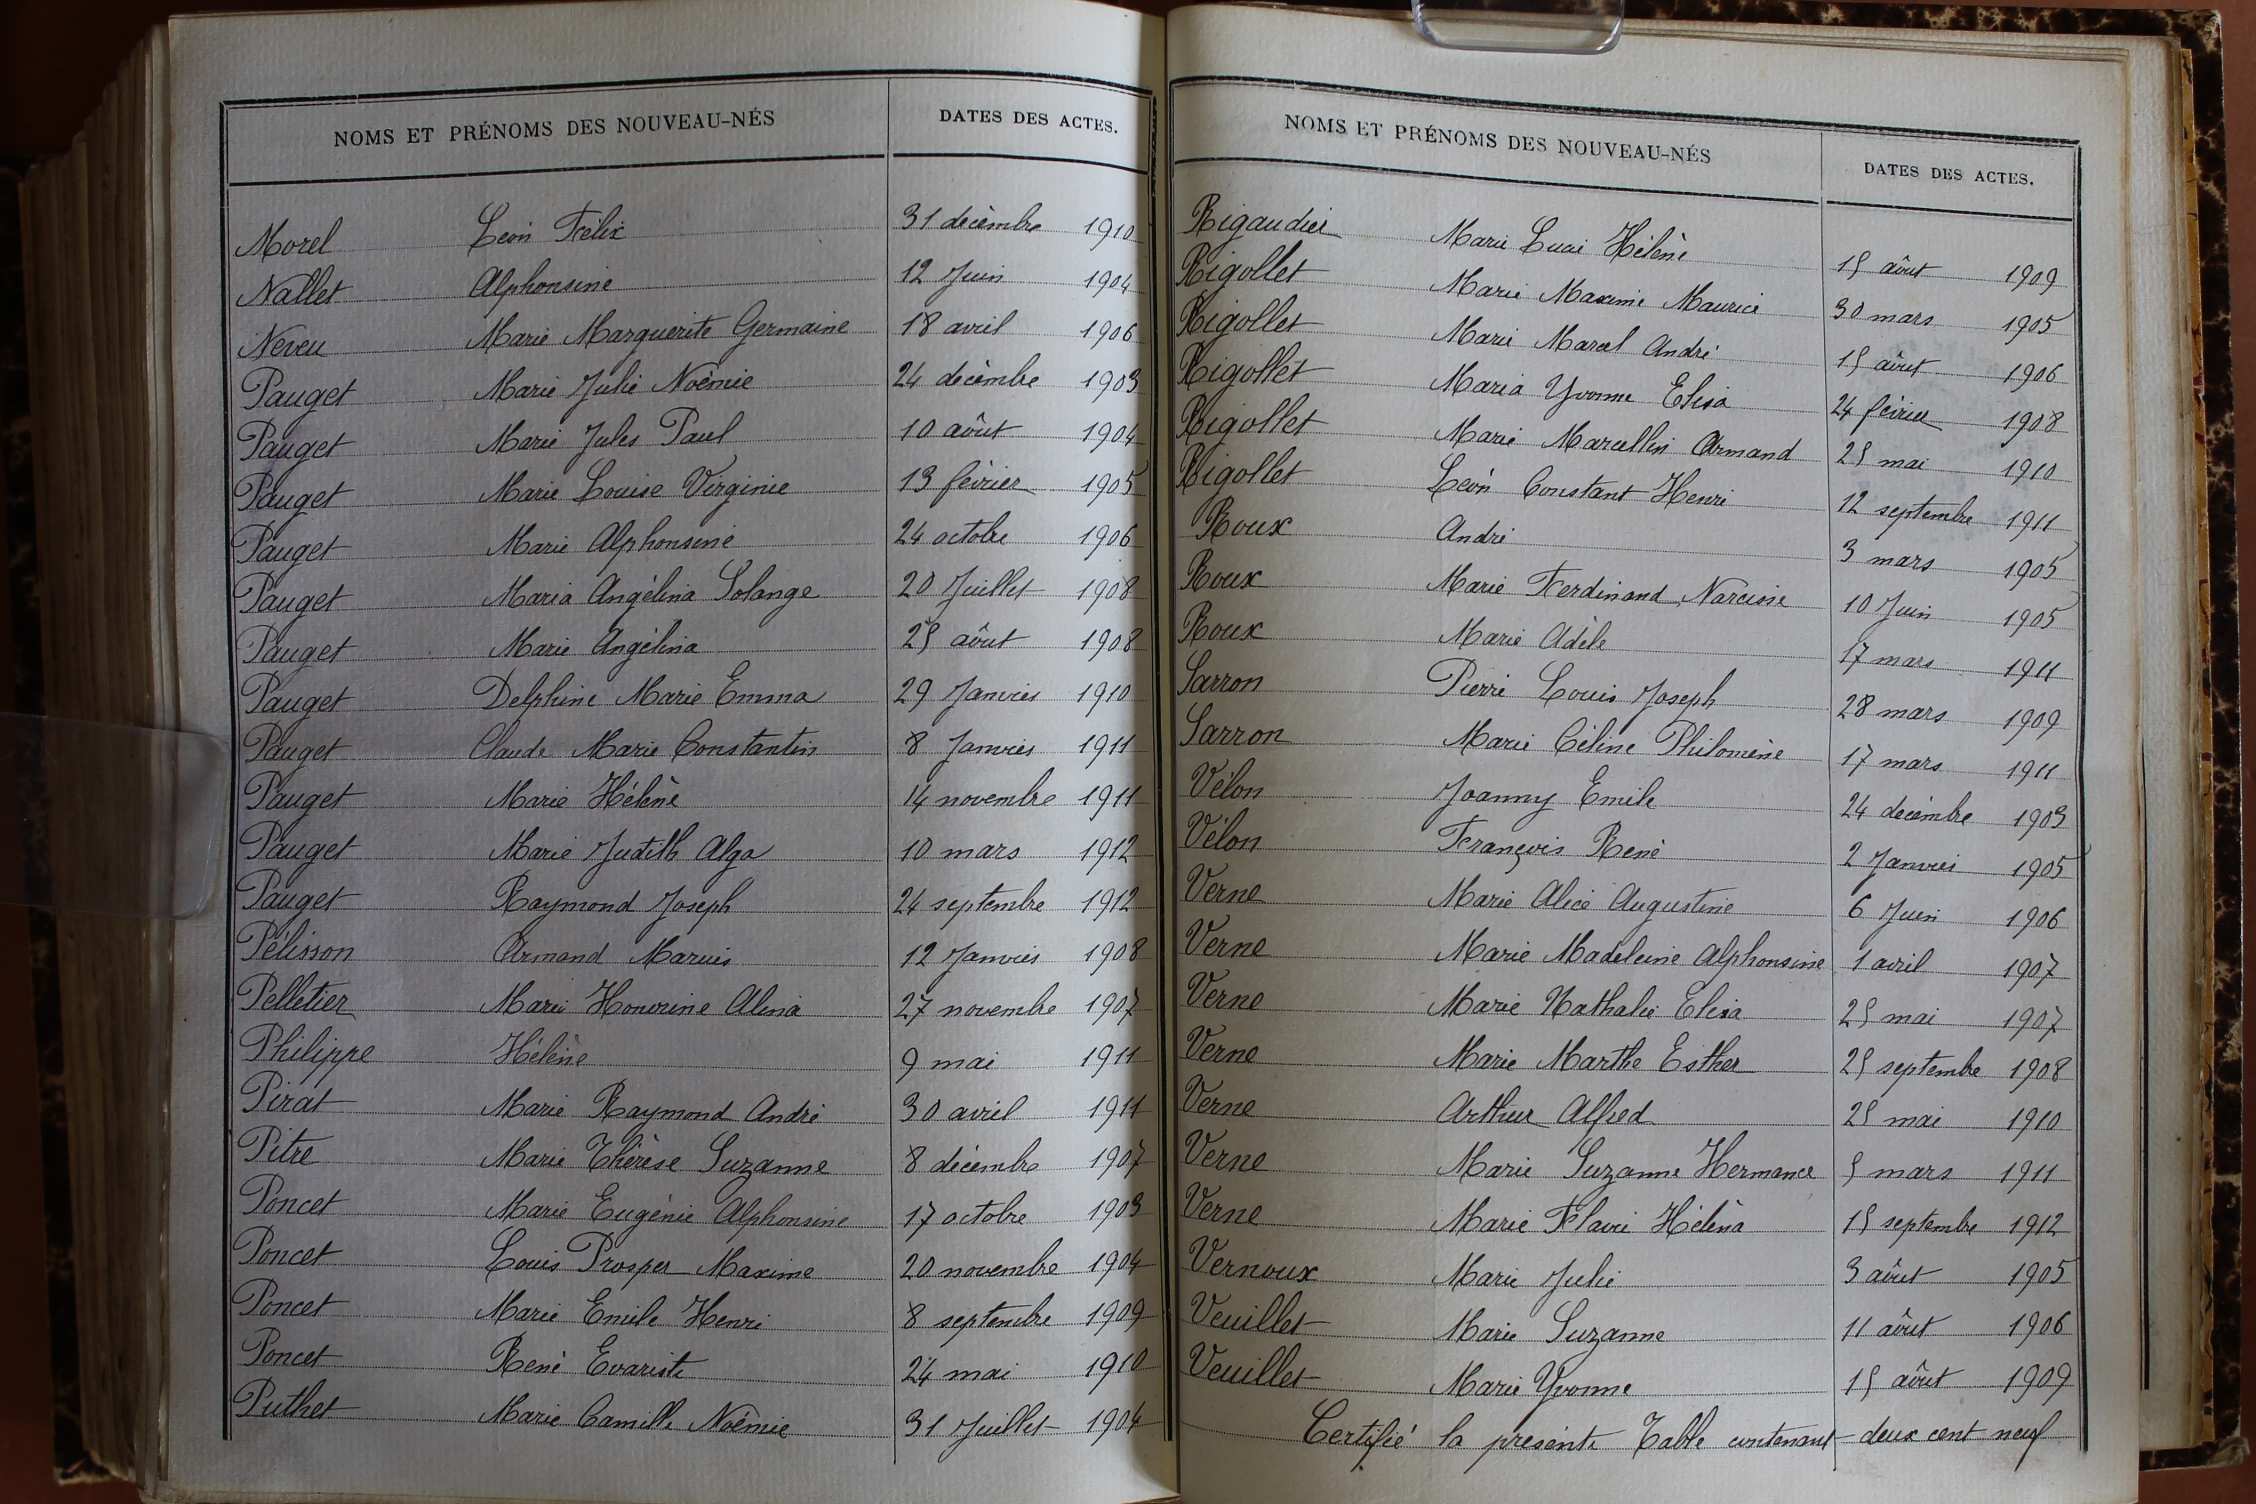 NOMS ET PRÉNOMS DES NOUVEAU-NÉS DATES DES ACTES.
Morel Léon Félix 31 décembre 1910
Nallet Alphonsine 12 Juin 1904
Neveu Marie Marguerite Germaine 18 avril 1906
Pauget Marie Julie Noémie 24 décembre 1903
Pauget Marie Jules Paul 10 août 1904
Pauget Marie Louise Virginie 13 février 1905
Pauget Marie Alphonsine 24 octobre 1906
Pauget Maria Angélina Solange 20 Juillet 1908
Pauget Marie Angélina 25 août 1908
Pauget Delphine Marie Emma 29 Janvier 1910
Pauget Claude Marie Constantin 8 Janvier 1911
Pauget Marie Hélène 14 novembre 1911
Pauget Marie Judith Alga 10 mars 1912
Pauget Raymond Joseph 24 septembre 1912
Pélisson Armand Marius 12 Janvier 1908
Pelletier Marie Honorine Alina 27 novembre 1907
Philippe Hélène 9 mai 1911
Pirat Marie Raymond André 30 avril 1911
Pitre Marie Thérèse Suzanne 8 décembre 1907
Poncet Marie Eugénie Alphonsine 17 octobre 1903
Poncet Louis Prosper Maxime 20 novembre 1904
Poncet Marie Emile Henri 8 septembre 1909
Poncet René Evariste 24 mai 1910
Puthet Marie Camille Noémie 31 Juillet 1904
NOMS ET PRÉNOMS DES NOUVEAU-NÉS DATES DES ACTES.
Rigaudier Marie Lucie Hélène 15 août 1909
Rigollet Marie Maxime Maurice 30 mars 1905
Rigollet Marie Marcel André 15 août 1906
Rigollet Maria Yvonne Elisa 24 février 1908
Rigollet Marie Marcellin Armand 25 mai 1910
Rigollet Léon Constant Henri 12 septembre 1911
Roux André 3 mars 1905
Roux Marie Ferdinand Narcisse 10 Juin 1905
Roux Marie Adèle 17 mars 1911
Sarron Pierre Louis Joseph 28 mars 1909
Sarron Marie Céline Philomène 17 mars 1911
Vélon Joanny Emile 24 décembre 1903
Vélon François René 2 Janvier 1905
Verne Marie Alice Augustine 6 Juin 1906
Verne Marie Madeleine Alphonsine 1 avril 1907
Verne Marie Nathalie Elisa 25 mai 1907
Verne Marie Marthe Esther 25 septembre 1908
Verne Arthur Alfred 25 mai 1910
Verne Marie Suzanne Hermance 5 mars 1911
Verne Marie Flavie Hélèna 15 septembre 1912
Vernoux Marie Julie 3 août 1905
Veuillet Marie Suzanne 11 août 1906
Veuillet Marie Yvonne 15 août 1909
Certifié la présente Table contenant deux cent neuf